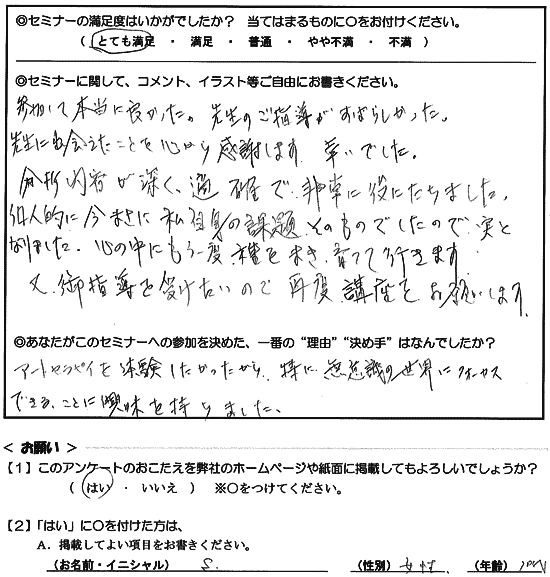 ◎セミナーの満足度はいかがでしたか？ 当てはまるものに○をお付けください。
（ とても満足 ・ 満足 ・ 普通 ・ やや不満 ・ 不満 ）
◎セミナーに関して、コメント、イラスト等ご自由にお書きください。
参加して本当に良かった。先生のご指導がすばらしかった。
先生に出会えたことを心から感謝します 幸いでした。
分析内容が深く、適確で非常に役にたちました。
個人的に今まさに私自身の課題そのものでしたので、実と
なりました。心の中にもう一度種をまき、育てて行きます
又、御指導を受けたいので再度講座をお願いします
◎あなたがこのセミナーへの参加を決めた、一番の“理由”“決め手”はなんでしたか？
アートセラピイを体験したかったから。特に無意識の世界にフォーカス
できる、ことに興味を持ちました。
＜ お願い ＞
【１】このアンケートのおこたえを弊社のホームページや紙面に掲載してもよろしいでしょうか？
（ はい ・ いいえ ） ※○をつけてください。
【２】「はい」に○を付けた方は、
A．掲載してよい項目をお書きください。
（お名前・イニシャル） S. （性別）女性 （年齢）